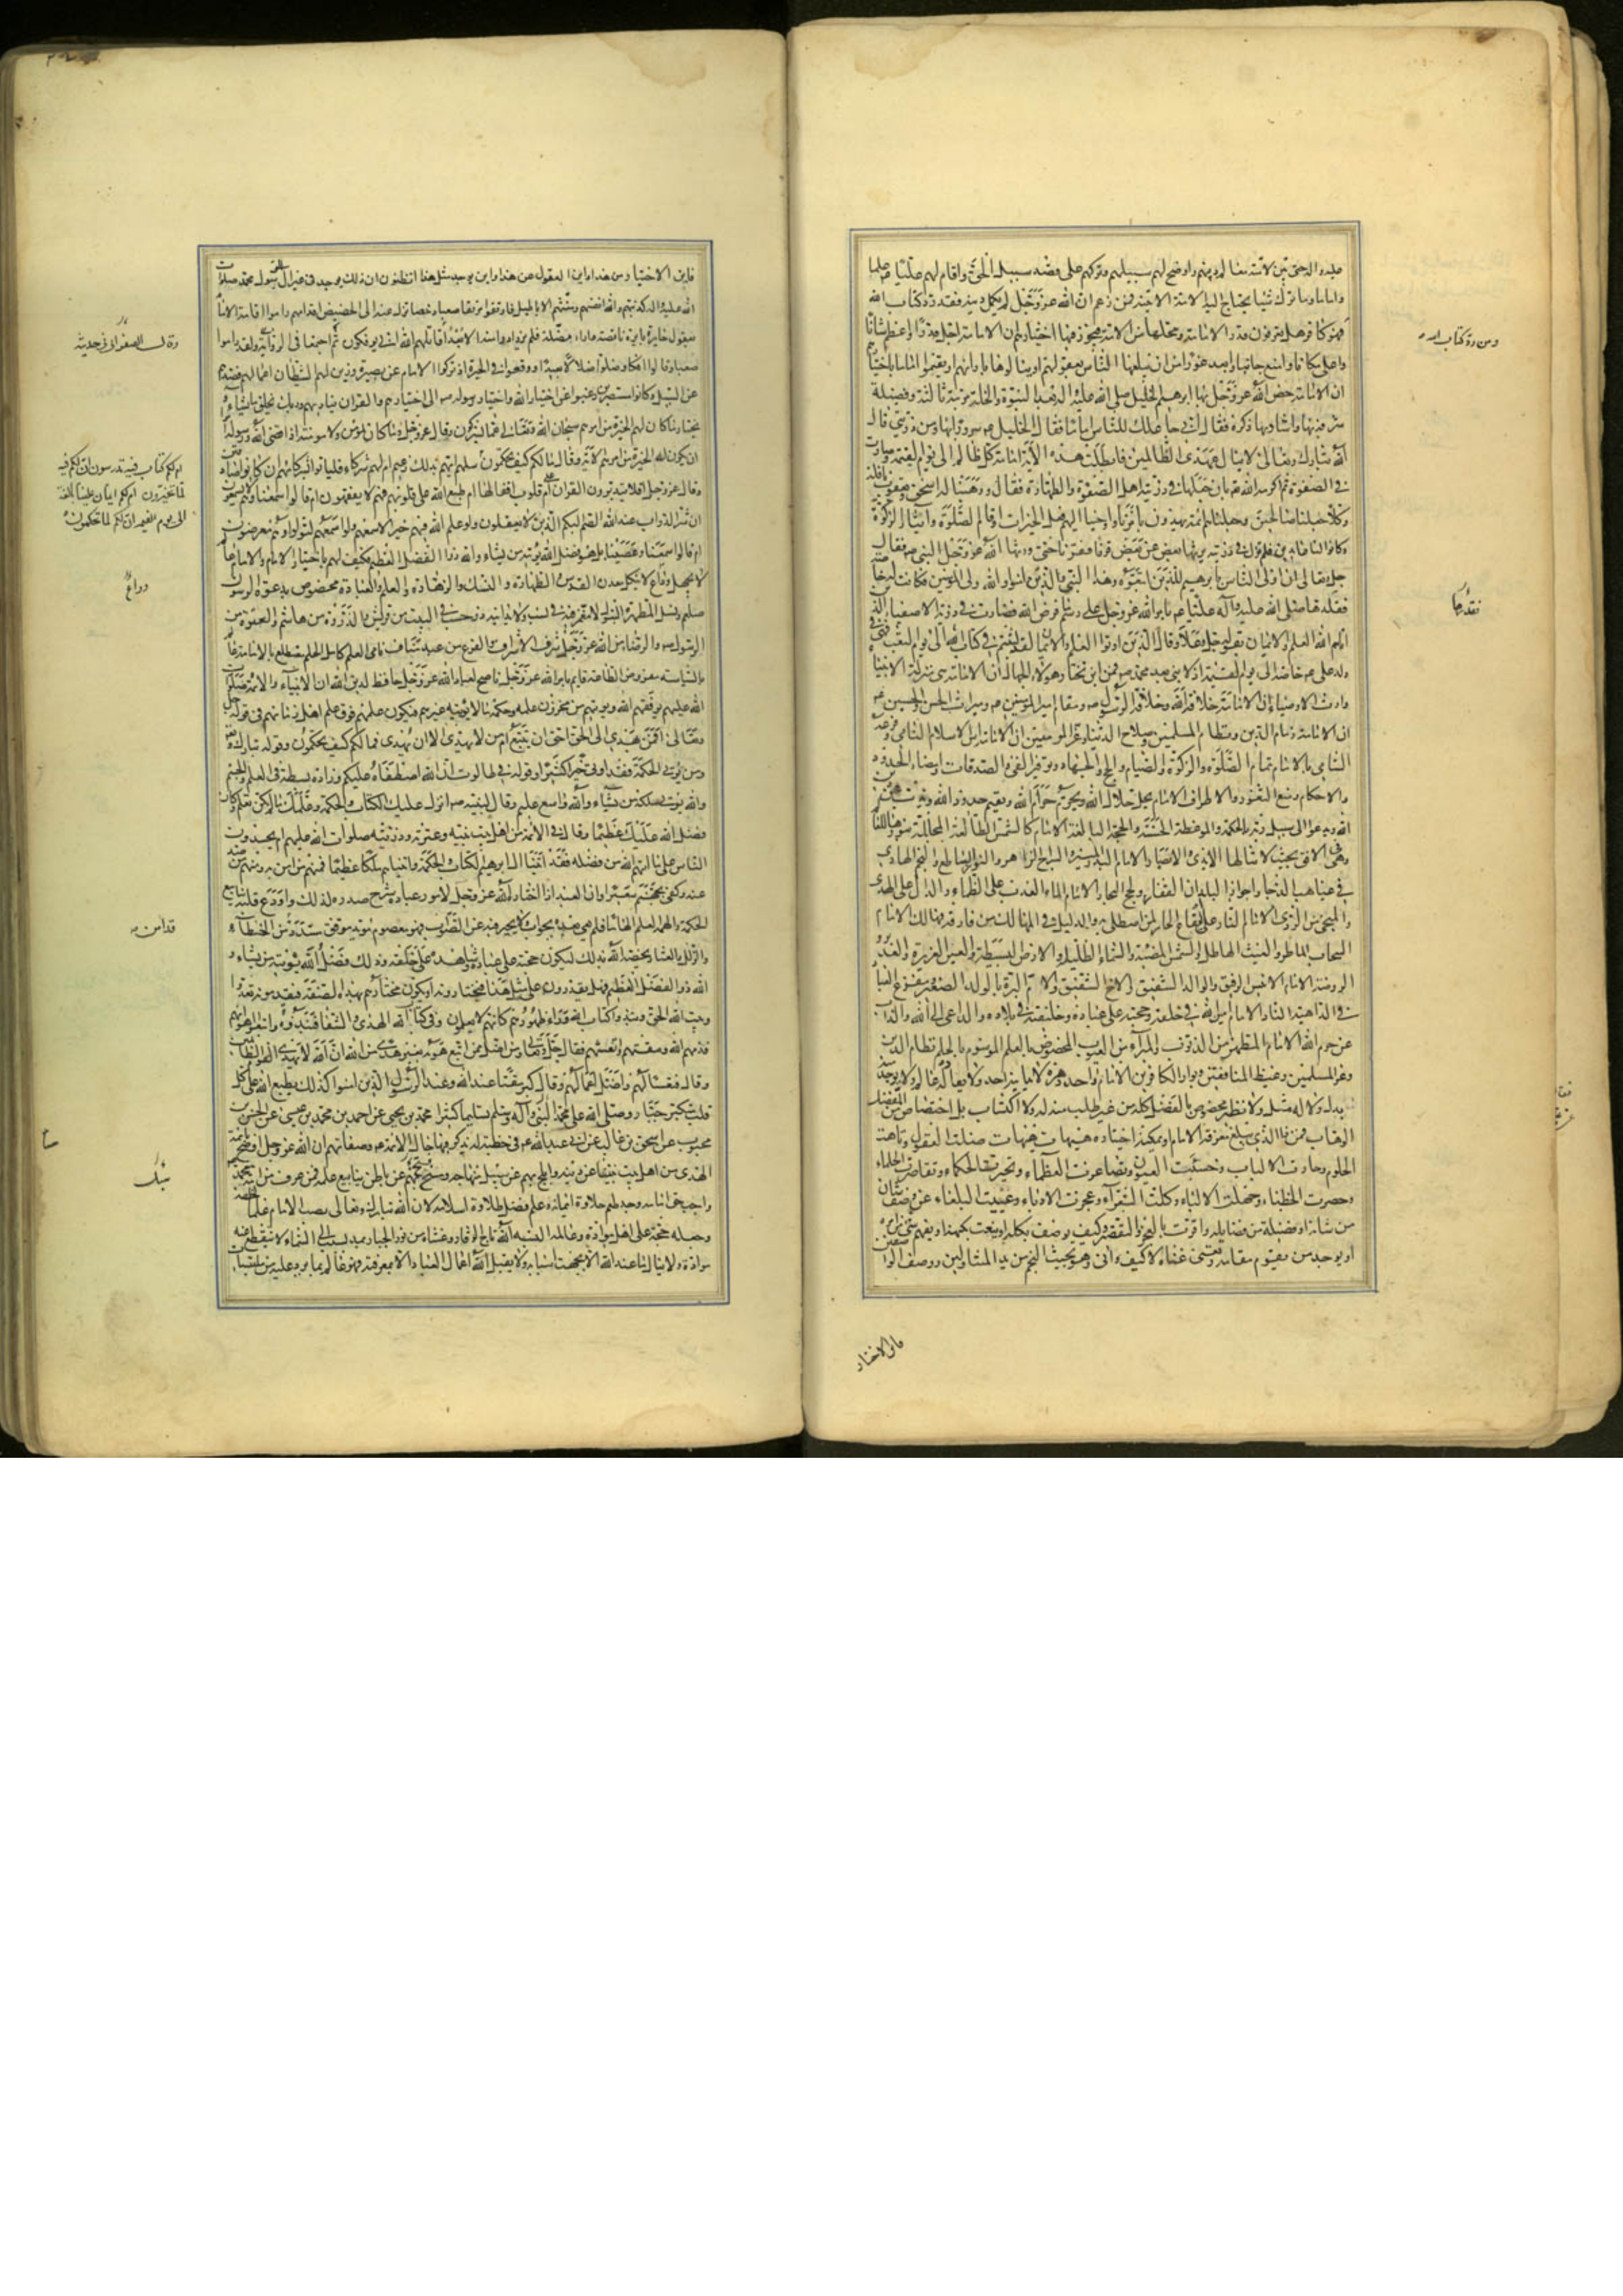 عليه وآله حتى بين لامته معالم دينهم واوضح لهم سبيلهم وتركهم على قصد سبيل الحق واقام لهم عليا ع علما
واماما وما ترك شيئا يحتاج اليه الامة الا بينه فمن زعم ان الله عز وجل لم يكمل دينه فقد رد كتاب الله
فهو كافر هل يعرفون قدر الامامة ومحلها من الامة فيجوز فيها اختيارهم ان الامامة اجل قدرا واعظم شانا
واعلى مكانا وامنع جانبا وابعد غورا من ان يبلغها الناس بعقولهم او ينالوها بارائهم او يقيموا اماما باختيارهم
ان الامامة خص الله عز وجل بها ابرهيم الخليل صلى الله عليه وآله بعد النبوة والخلة مرتبة ثالثة وفضيلة
شرفه بها واشاد بها ذكره فقال انى جاعلك للناس اماما فقال الخليل ع سرورا بها ومن ذريتى قال
الله تبارك وتعالى لا ينال عهدى الظالمين فابطلت هذه الآية امامة كل ظالم الى يوم القيمة وصارت
فى الصفوة ثم اكرمه الله تع بان جعلها فى ذريته اهل الصفوة والطهارة فقال ووهبنا له اسحق ويعقوب نافلة
وكلا جعلنا صالحين وجعلناهم ائمة يهدون بامرنا واوحينا اليهم فعل الخيرات واقام الصلوة وايتاء الزكوة
وكانوا لنا عابدين فلم تزل فى ذريته يرثها بعض عن بعض قرنا فقرنا حتى ورثها الله عز وجل النبى ص فقال
جل وتعالى ان اولى الناس بابرهيم للذين اتبعوه وهذا النبى والذين امنوا والله ولى المؤمنين فكانت له خاصة
فقلدها صلى الله عليه وآله عليا ع بامر الله عز وجل على رسم ما فرض الله فصارت فى ذريته الاصفياء الذين
اتاهم الله العلم والايمان بقوله جل وعلا وقال الذين اوتوا العلم والايمان لقد لبثتم فى كتاب الله الى يوم البعث فهى فى
ولد على ع خاصة الى يوم القيمة اذ لا نبى بعد محمد ص فمن اين يختار هؤلاء الجهال ان الامامة هى منزلة الانبياء
وارث الاوصياء ان الامامة خلافة الله وخلافة الرسول ص ومقام امير المؤمنين ع وميراث الحسن والحسين ع
ان الامامة زمام الدين ونظام المسلمين وصلاح الدنيا وعز المؤمنين ان الامامة اس الاسلام النامى وفرعه
السامى بالامام تمام الصلوة والزكوة والصيام والحج والجهاد وتوفير الفىء والصدقات وامضاء الحدود
والاحكام ومنع الثغور والاطراف الامام يحل حلال الله ويحرم حرام الله ويقيم حدود الله ويذب عن دين
الله ويدعو الى سبيل ربه بالحكمة والموعظة الحسنة والحجة البالغة الامام كالشمس الطالعة المجللة بنورها للعالم
وهى فى الافق بحيث لا تنالها الايدى والابصار الامام البدر المنير والسراج الزاهر والنور الساطع والنجم الهادى
فى غياهب الدجى واجواز البلدان والقفار ولجج البحار الامام الماء العذب على الظماء والدال على الهدى
والمنجى من الردى الامام النار على اليفاع الحار لمن اصطلى به والدليل فى المهالك من فارقه فهالك الامام
السحاب الماطر والغيث الهاطل والشمس المضيئة والسماء الظليلة والارض البسيطة والعين الغزيرة والغدير
والروضة الامام الانيس الرفيق والوالد الشفيق والاخ الشقيق والام البرة بالولد الصغير ومفزع العباد
فى الداهية الناد الامام امين الله فى خلقه وحجته على عباده وخليفته فى بلاده والداعى الى الله والذاب
عن حرم الله الامام المطهر من الذنوب والمبرأ من العيوب المخصوص بالعلم الموسوم بالحلم نظام الدين
وعز المسلمين وغيظ المنافقين وبوار الكافرين الامام واحد دهره لا يدانيه احد ولا يعادله عالم ولا يوجد منه
بدل ولا له مثل ولا نظير مخصوص بالفضل كله من غير طلب منه له ولا اكتساب بل اختصاص من المفضل
الوهاب فمن ذا الذى يبلغ معرفة الامام او يمكنه اختياره هيهات هيهات ضلت العقول وتاهت
الحلوم وحارت الالباب وخسئت العيون وتصاغرت العظماء وتحيرت الحكماء وتقاصرت الحلماء
وحصرت الخطباء وجهلت الالباء وكلت الشعراء وعجزت الادباء وعييت البلغاء عن وصف شان
من شانه او فضيلة من فضايله واقرت بالعجز والتقصير وكيف يوصف بكله او ينعت بكنهه او يفهم شىء من امره
او يوجد من يقوم مقامه ويغنى غناه لا كيف وانى وهو بحيث النجم من يد المتناولين ووصف الواصفين
فاين الاختيار
ومن رد كتاب الله
فقلدها
فاين الاختيار من هذا واين العقول عن هذا واين يوجد مثل هذا اتظنون ان ذلك يوجد فى غير آل الرسول محمد صلوات
الله عليه وآله كذبتهم والله انفسهم ومنتهم الاباطيل فارتقوا مرتقا صعبا دحضا تزل عنه الى الحضيض اقدامهم راموا اقامة الامام
بعقول حايرة بايرة ناقصة واراء مضلة فلم يزدادوا منه الا بعدا قاتلهم الله انى يؤفكون ثم اجمعا فى الرواية ولقد راموا
صعبا وقالوا افكا وضلوا ضلالا بعيدا ووقعوا فى الحيرة اذ تركوا الامام عن بصيرة وزين لهم الشيطان اعمالهم فصدهم
عن السبيل وكانوا مستبصرين رغبوا عن اختيار الله واختيار رسوله ص الى اختيارهم والقران يناديهم وربك يخلق ما يشاء
ويختار ما كان لهم الخيرة من امرهم سبحان الله وتعالى عما يشركون وقال عز وجل وما كان لمؤمن ولا مؤمنة اذا قضى الله ورسوله
ان يكون لهم الخيرة من امرهم الآية وقال ما لكم كيف تحكمون سلهم ايهم بذلك زعيم ام لهم شركاء فلياتوا بشركائهم ان كانوا صادقين
وقال عز وجل افلا يتدبرون القران ام على قلوب اقفالها ام طبع الله على قلوبهم فهم لا يفقهون ام قالوا سمعنا وهم لا يسمعون
ان شر الدواب عند الله الصم البكم الذين لا يعقلون ولو علم الله فيهم خيرا لاسمعهم ولو اسمعهم لتولوا وهم معرضون
ام قالوا سمعنا وعصينا بل هو فضل الله يؤتيه من يشاء والله ذو الفضل العظيم فكيف لهم باختيار الامام والامام عالم
لا يجهل وراع لا ينكل معدن القدس والطهارة والنسك والزهادة والعلم والعبادة مخصوص بدعوة الرسول
صلعم ونسل المطهرة البتول لا مغمز فيه فى نسب ولا يدانيه ذو حسب فى البيت من قريش والذروة من هاشم والعترة من
الرسول ص والرضا من الله عز وجل شرف الاشراف والفرع من عبد مناف نامى العلم كامل الحلم مضطلع بالامامة عالم
بالسياسة مفروض الطاعة قايم بامر الله عز وجل ناصح لعباد الله عز وجل حافظ لدين الله ان الانبياء والائمة صلوات
الله عليهم يوفقهم الله ويؤتيهم من مخزون علمه وحكمه ما لا يؤتيه غيرهم فيكون علمهم فوق علم اهل زمانهم فى قوله جل
وتعالى افمن يهدى الى الحق احق ان يتبع ام من لا يهدى الا ان يهدى فما لكم كيف تحكمون وقوله تبارك وتع
ومن يؤت الحكمة فقد اوتى خيرا كثيرا وقوله فى طالوت ان الله اصطفاه عليكم وزاده بسطة فى العلم والجسم
والله يؤتى ملكه من يشاء والله واسع عليم وقال لنبيه ص انزل عليك الكتاب والحكمة وعلمك ما لم تكن تعلم وكان
فضل الله عليك عظيما وقال فى الائمة من اهل بيت نبيه وعترته وذريته صلوات الله عليهم ام يحسدون
الناس على ما اتيهم الله من فضله فقد اتينا ال ابرهيم الكتاب والحكمة واتيناهم ملكا عظيما فمنهم من امن به ومنهم من صد
عنه وكفى بجهنم سعيرا وان العبد اذا اختاره الله عز وجل لامور عباده شرح صدره لذلك واودع قلبه ينابيع
الحكمة والهمه العلم الهاما فلم يعى بعده بجواب ولا يحير فيه عن الصواب فهو معصوم مؤيد موفق مسدد قد امن الخطاء
والزلل والعثار يخصه الله بذلك ليكون حجته على عباده وشاهده على خلقه وذلك فضل الله يؤتيه من يشاء و
الله ذو الفضل العظيم فهل يقدرون على مثل هذا فيختارونه او يكون مختارهم بهذه الصفة فيقدمونه تعدوا
وبيت الله الحق ونبذوا كتاب الله وراء ظهورهم كانهم لا يعلمون وفى كتاب الله الهدى والشفا فنبذوه واتبعوا اهواءهم
فذمهم الله ومقتهم واتعسهم فقال جل وتعالى ومن اضل ممن اتبع هواه بغير هدى من الله ان الله لا يهدى القوم الظالمين
وقال فتعسا لهم واضل اعمالهم وقال كبر مقتا عند الله وعند الذين امنوا كذلك يطبع الله على كل
قلب متكبر جبار وصلى الله على محمد النبى وآله وسلم تسليما كثيرا محمد بن يحيى عن احمد بن محمد بن عيسى عن الحسن بن
محبوب عن اسحق بن غالب عن ابى عبد الله ع فى خطبة له يذكر فيها حال الائمة ع وصفاتهم ان الله عز وجل اوضح بائمة
الهدى من اهل بيت نبينا عن دينه وابلج بهم عن سبيل منهاجه وفتح بهم عن باطن ينابيع علمه فمن عرف من امة محمد
واجب حق امامه وجد طعم حلاوة ايمانه وعلم فضل طلاوة اسلامه لان الله تبارك وتعالى نصب الامام علما لخلقه
وجعله حجة على اهل مواده وعالمه والبسه الله تاج الوقار وغشاه من نور الجبار يمد بسبب الى السماء لا ينقطع عنه
مواده ولا ينال ما عند الله الا بجهة اسبابه ولا يقبل الله اعمال العباد الا بمعرفته فهو عالم بما يرد عليه من ملتبسات
وقال الصفوانى فى حديثه
ام لكم كتاب فيه تدرسون ان لكم فيه
لما تخيرون ام لكم ايمان علينا بالغة
الى يوم القيمة ان لكم لما تحكمون
وداع
قد امن